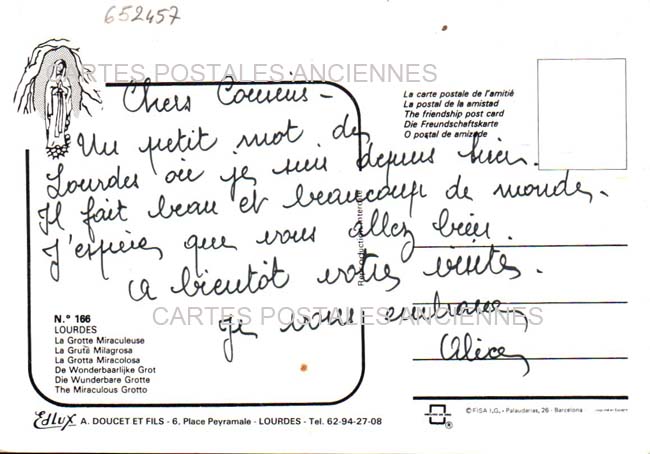 652457
CARTES POSTALES ANCIENNES
Chers Cousins -
Un petit mot de
Lourdes où je suis depuis hier.
Il fait beau et beaucoup de monde.
J'espère que vous allez bien.
A bientôt votre visite.
Je vous embrasse,
Alice
La carte postale de l'amitié
La postal de la amistad
The friendship post card
Die Freundschaftskarte
O postal de amizade
Reproduction interdite
N.° 166
LOURDES
La Grotte Miraculeuse
La Gruta Milagrosa
La Grotta Miracolosa
De Wonderbaarlijke Grot
Die Wunderbare Grotte
The Miraculous Grotto
CARTES POSTALES ANCIENNES
Edlux A. DOUCET ET FILS - 6, Place Peyramale - LOURDES - Tel. 62-94-27-08
®
© FISA I.G. - Palaudarias, 26 - Barcelona